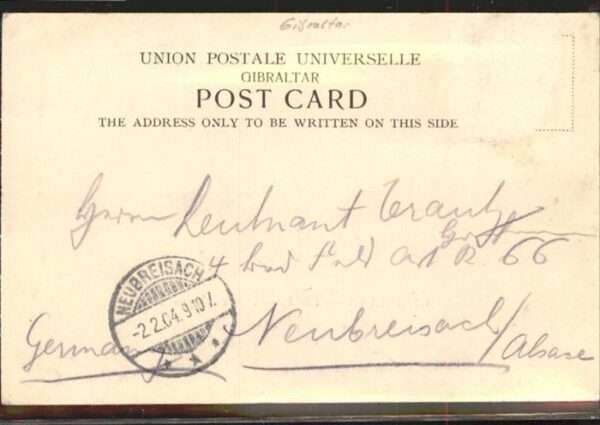 Gibraltar
UNION POSTALE UNIVERSELLE
GIBRALTAR
POST CARD
THE ADDRESS ONLY TO BE WRITTEN ON THIS SIDE
Herrn Leutnant
4 Bad Feld Art R 66
NEUBREISACH
-2.2.04.9-10V.
Neubreisach/Alsace
Germany